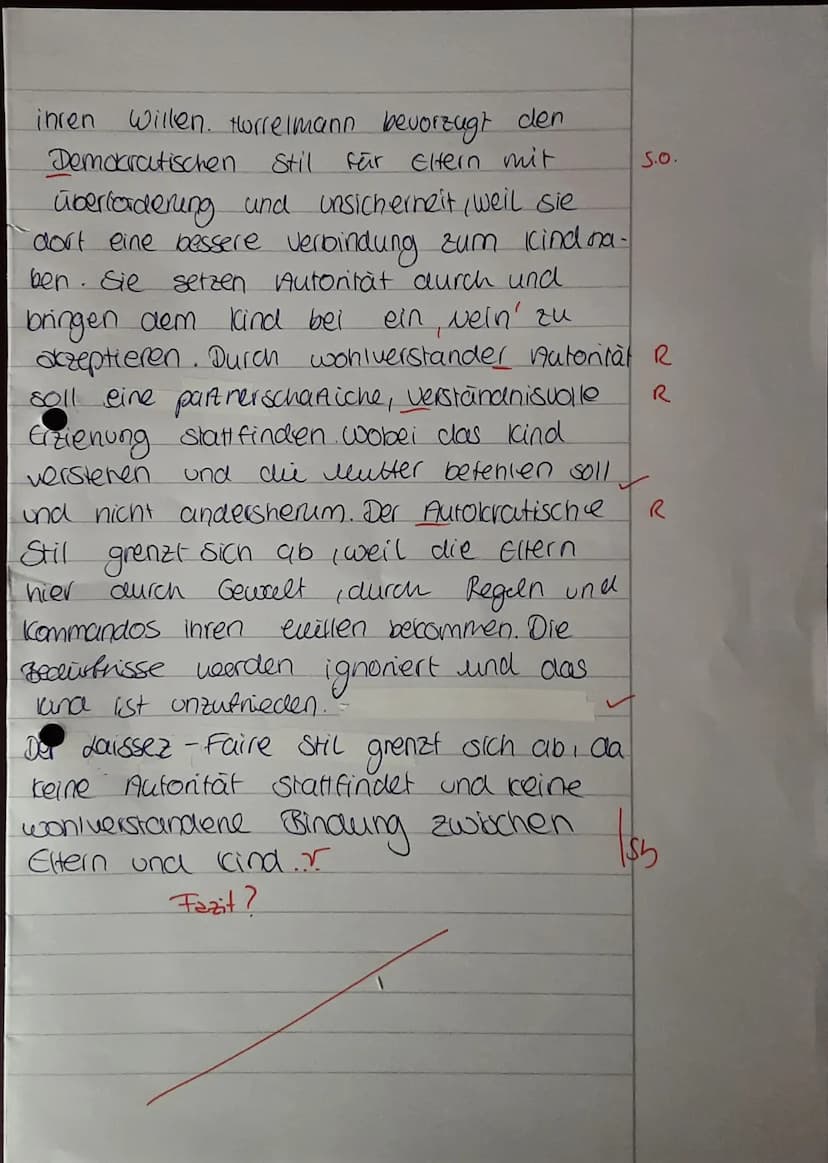 ihren Willen. Hurrelmann bevorzugt den
Demokratischen Stil für Eltern mit s.o.
überforderung und unsicherheit, weil sie
dort eine bessere verbindung zum Kind ha-
ben. Sie setzen Autorität durch und
bringen dem Kind bei ein ‚Nein' zu
akzeptieren. Durch wohlverstander Autorität R
soll eine partnerschafliche, verständnisvolle R
Erziehung stattfinden wobei das Kind
verstehen und die Mutter befehlen soll ✓
und nicht andersherum. Der Autokratische R
Stil grenzt sich ab, weil die Eltern
hier durch Gewalt, durch Regeln und
Kommandos ihren willen bekommen. Die
Bedürfnisse werden ignoriert und das
Kind ist unzufrieden. ✓
Der Laissez-Faire Stil grenzt sich ab, da
keine Autorität stattfindet und keine
wohlverstandene Bindung zwischen
Eltern und Kind. Sb
Fazit?